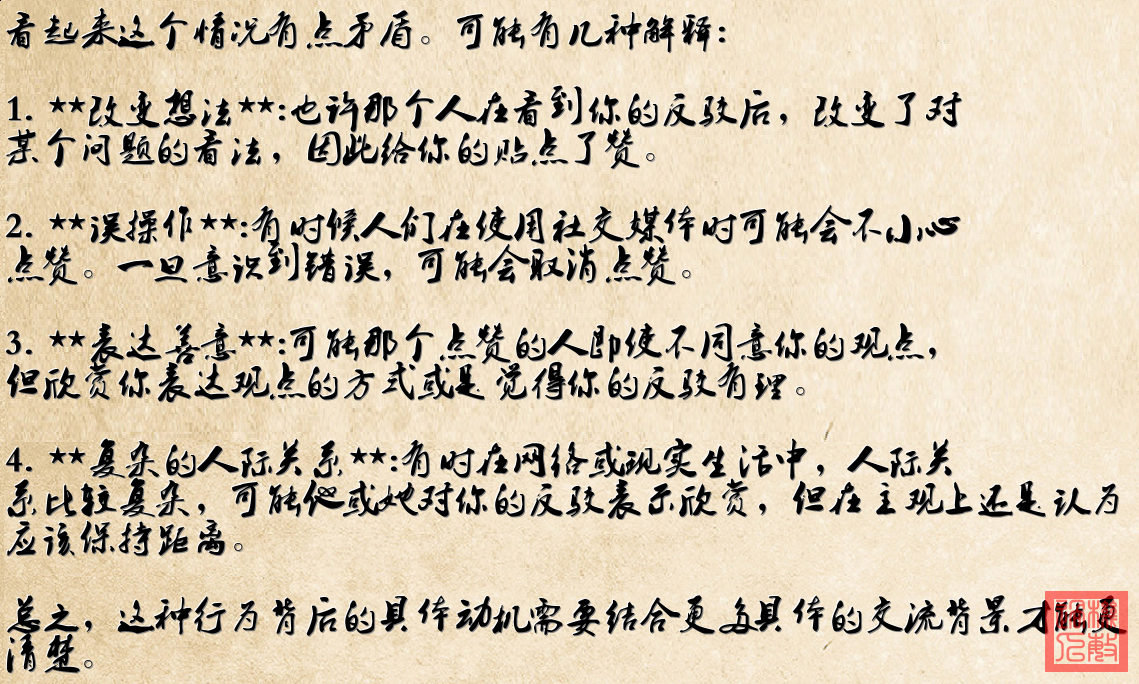 看起来这个情况有点矛盾。可能有几种解释：
1. **改变想法**:也许那个人在看到你的反驳后，改变了对
某个问题的看法，因此给你的贴点了赞。
2. **误操作**:有时候人们在使用社交媒体时可能会不小心
点赞。一旦意识到错误，可能会取消点赞。
3. **表达善意**:可能那个点赞的人即使不同意你的观点，
但欣赏你表达观点的方式或是觉得你的反驳有理。
4. **复杂的人际关系**:有时在网络或现实生活中，人际关
系比较复杂，可能他或她对你的反驳表示欣赏，但在主观上还是认为
应该保持距离。
总之，这种行为背后的具体动机需要结合更多具体的交流背景才能更
清楚。